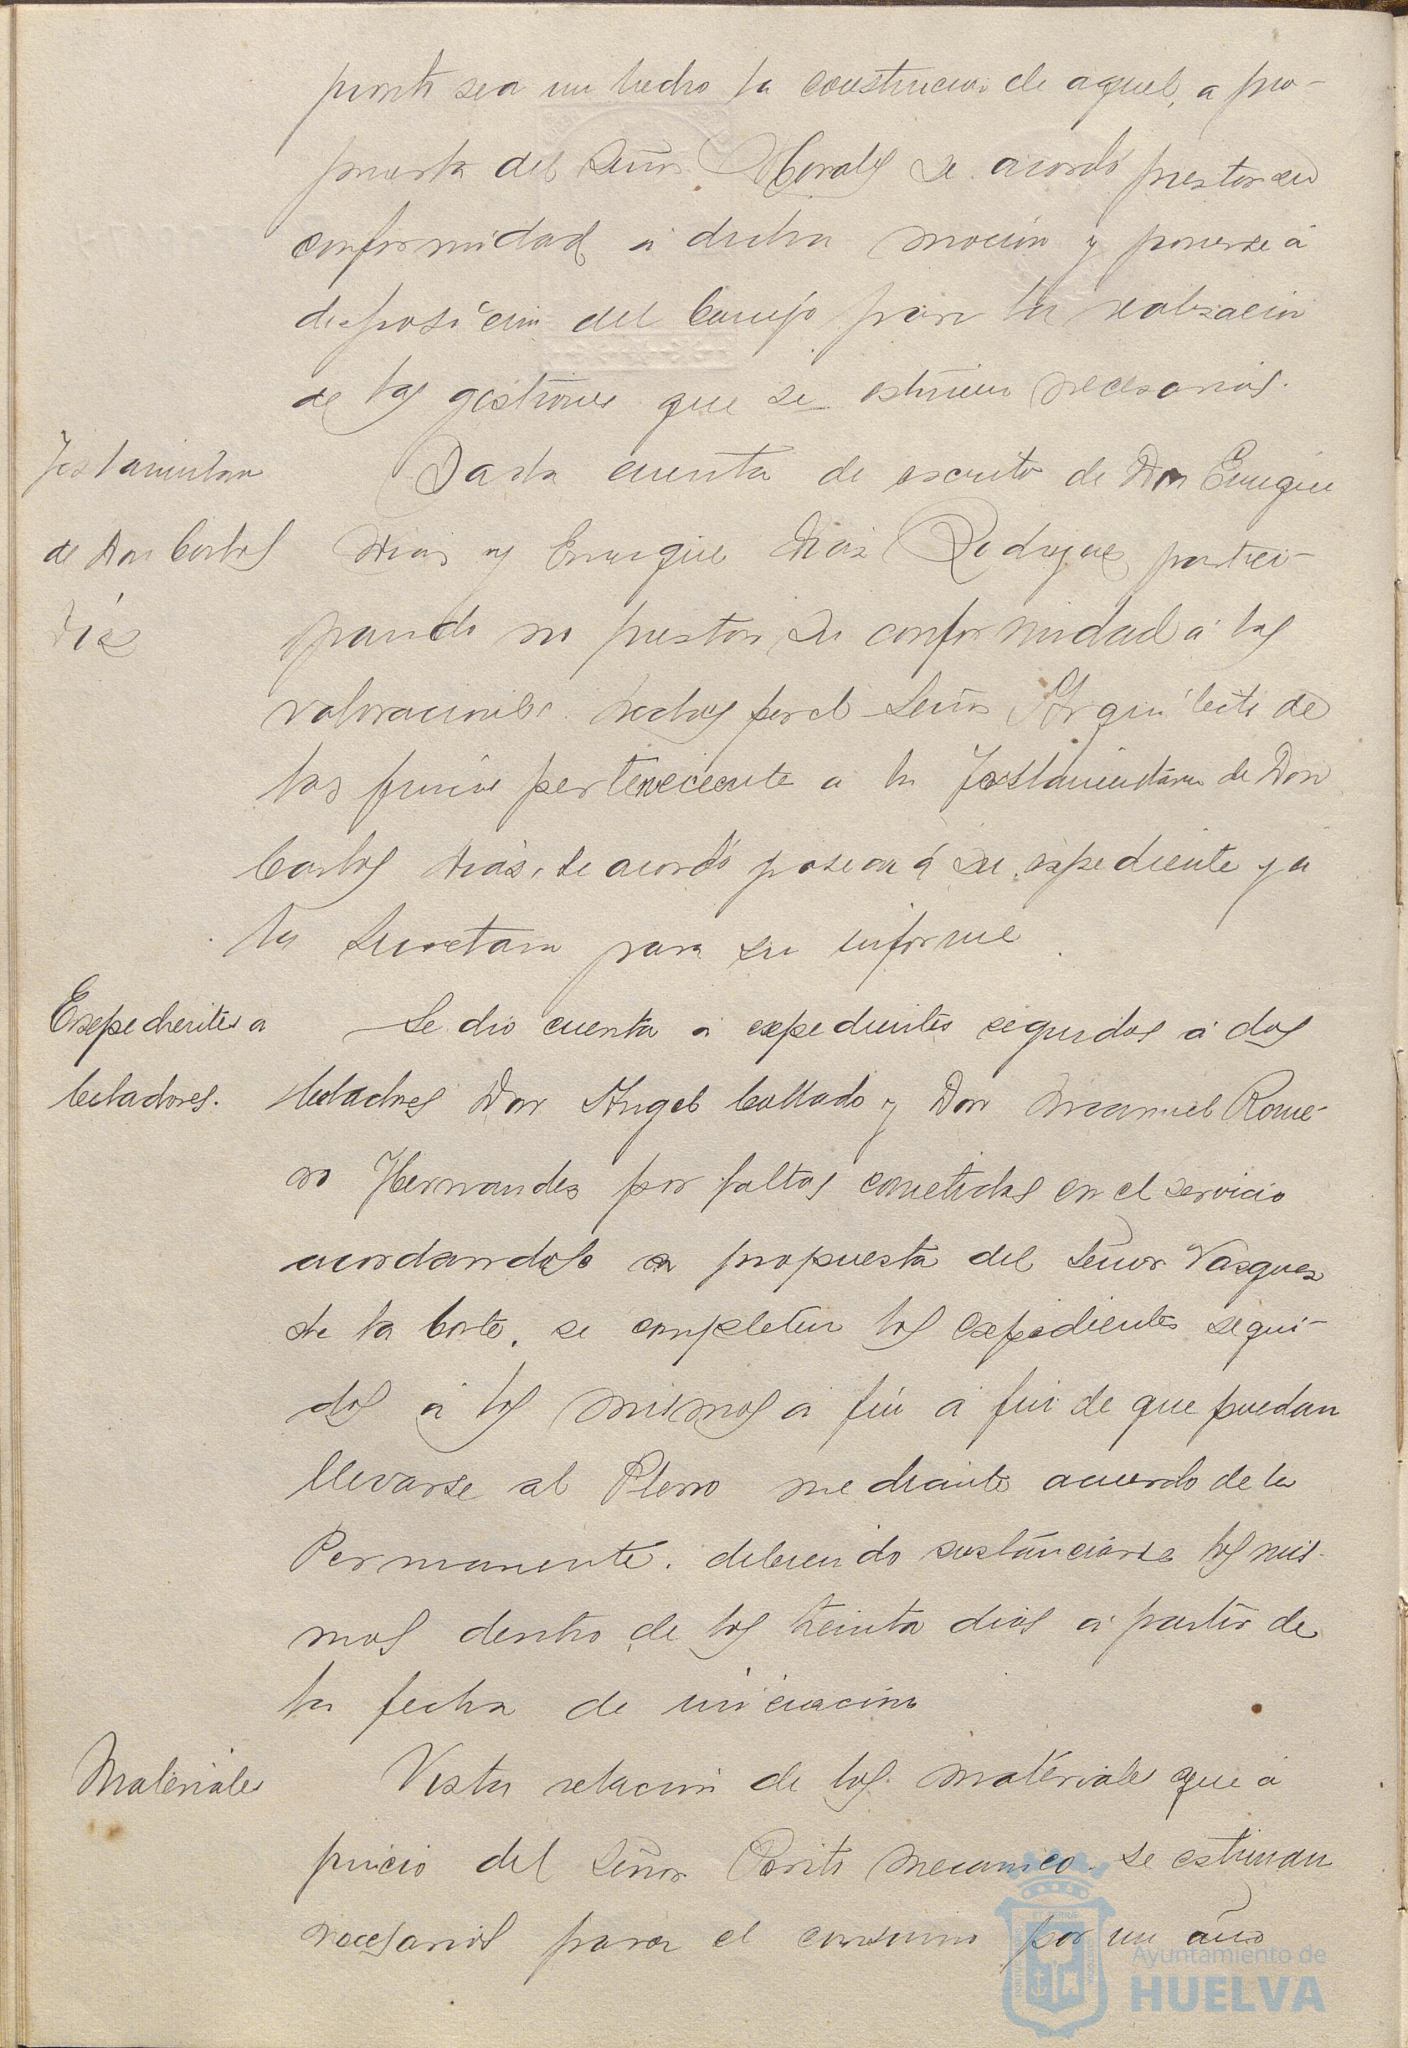 pronto sea un hecho la construcción de aquel, a pro-
puesta del Señor Morales se acordó prestar su
conformidad a dicha moción y ponerse a
disposición del Consejo para la realización
de las gestiones que se estimen necesarias.
Testamentaria
Dada cuenta de escrito de Don Enrique
de Don Carlos
Dias y Enrique Dias Rodriguez partici-
Dias
pando no prestar su conformidad a las
valoraciones hechas por el Señor Arquitecto de
las fincas perteneciente a la Testamentaria de Don
Carlos Dias, se acordó pasara a su expediente y a
la Secretaria para su informe.
Expedientes a
Se dio cuenta a expedientes seguidos a dos
Celadores.
Celadores Don Angel Collado y Don Manuel Rome-
ro Hernandes por faltas cometidas en el servicio
acordandose a propuesta del Señor Vasques
de la Corte, se completen los expedientes segui-
dos a los mismos a fin a fin de que puedan
llevarse al Pleno mediante acuerdo de la
Permanente. debiendo sustanciarse los mis-
mos dentro de los treinta dias a partir de
la fecha de iniciación
Materiales
Vista relación de los materiales que a
juicio del Señor Perito mecanico se estiman
necesarios para el consumo por un año
Ayuntamiento de
HUELVA